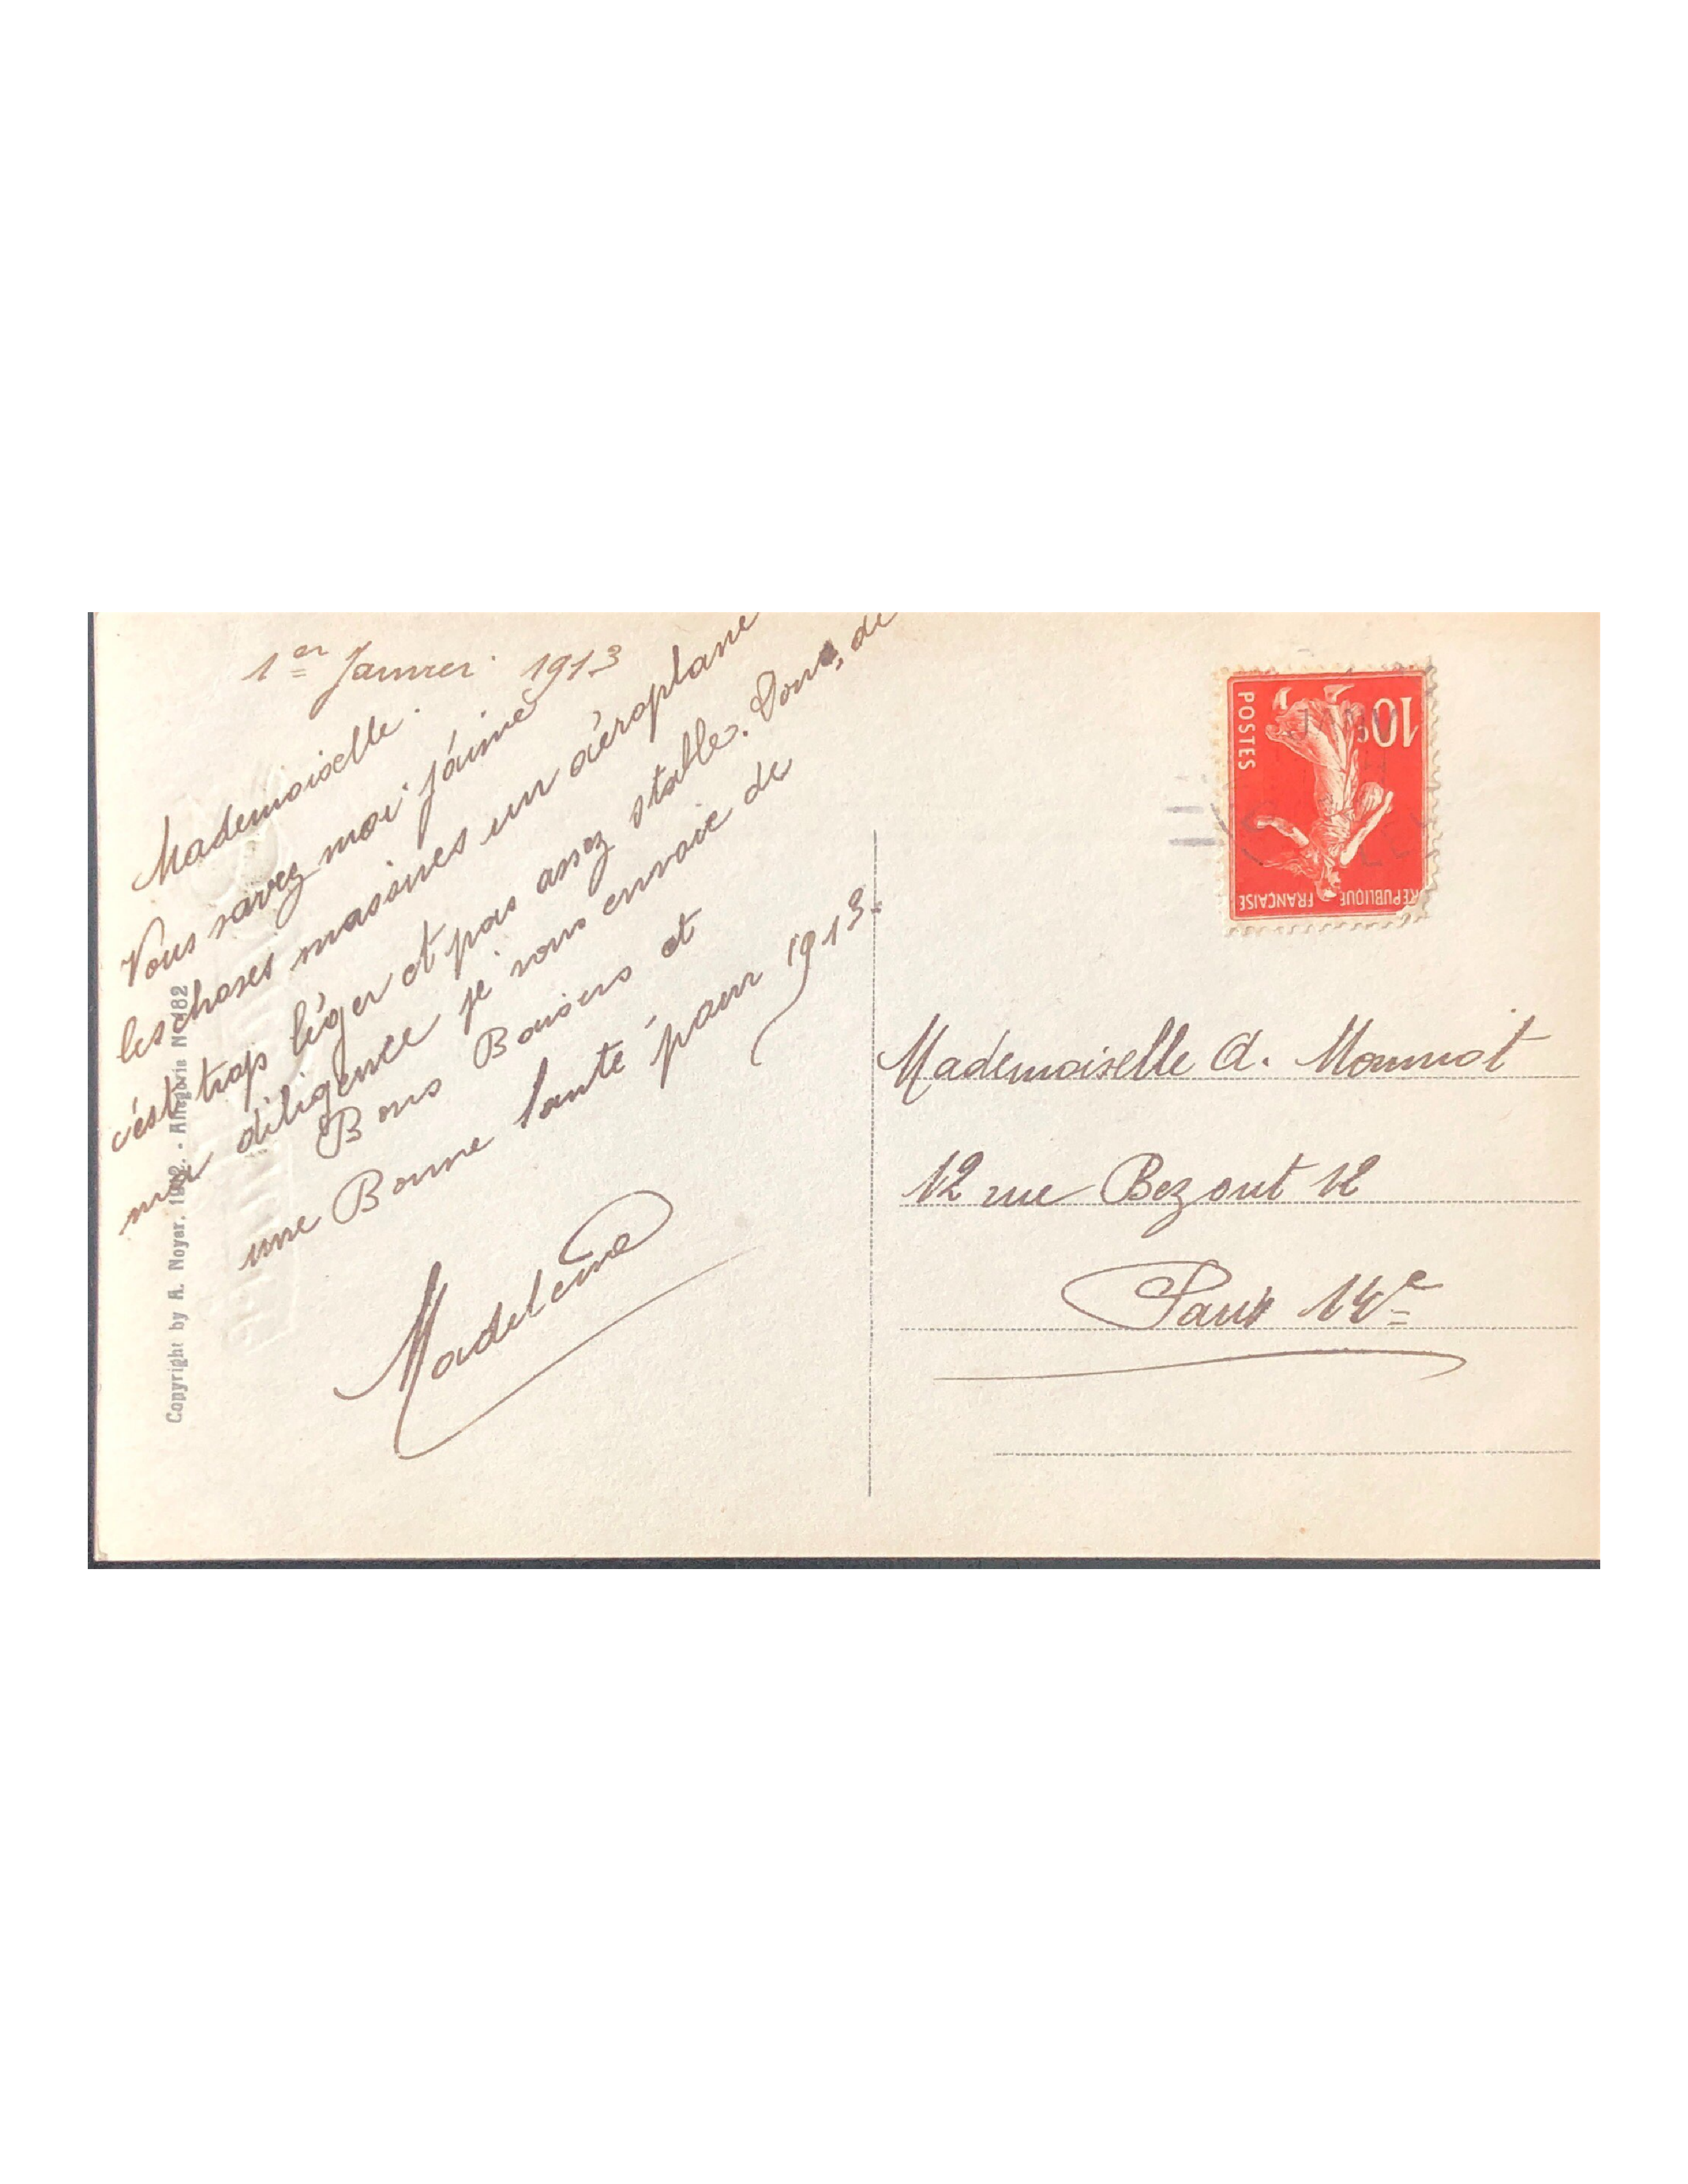 1er Janvier 1913
Mademoiselle.
Vous savez moi j'aime
les choses massives un aéroplane
c'est trop léger et pas assez stable. Donc, de
ma diligence je vous envoie de
Bons Baisers et
une Bonne Santé pour 1913.
Madeleine
Copyright by A. Noyer, 1912. - Allegoria No 182
10c
POSTES
REPUBLIQUE FRANÇAISE
Mademoiselle A. Monniot
12 rue Bezout 12
Paris 14e